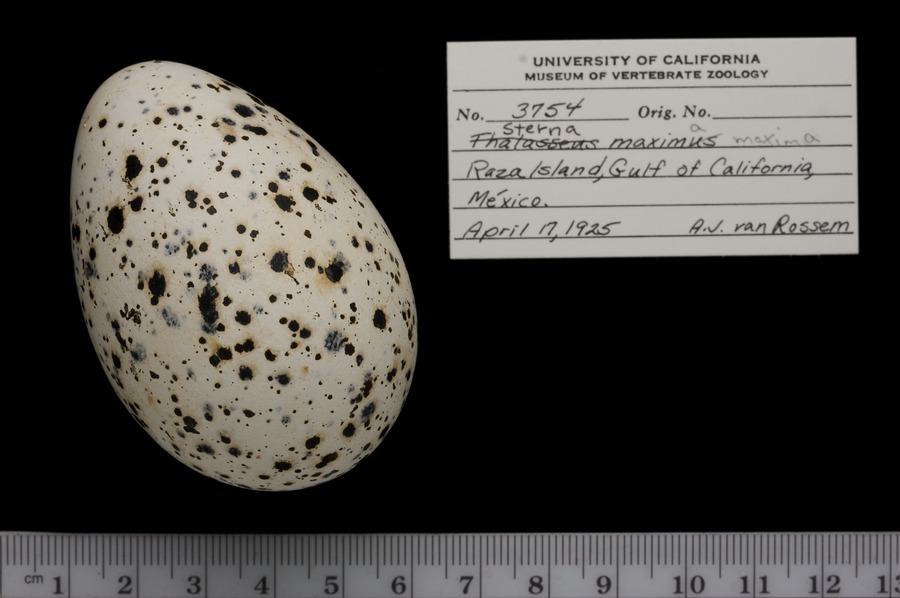 UNIVERSITY OF CALIFORNIA
MUSEUM OF VERTEBRATE ZOOLOGY
No. 3754 Orig. No.
Sterna
Thalasseus maximus a maxima
Raza Island, Gulf of California,
México.
April 17, 1925 A.J. van Rossem
cm 1 2 3 4 5 6 7 8 9 10 11 12 13